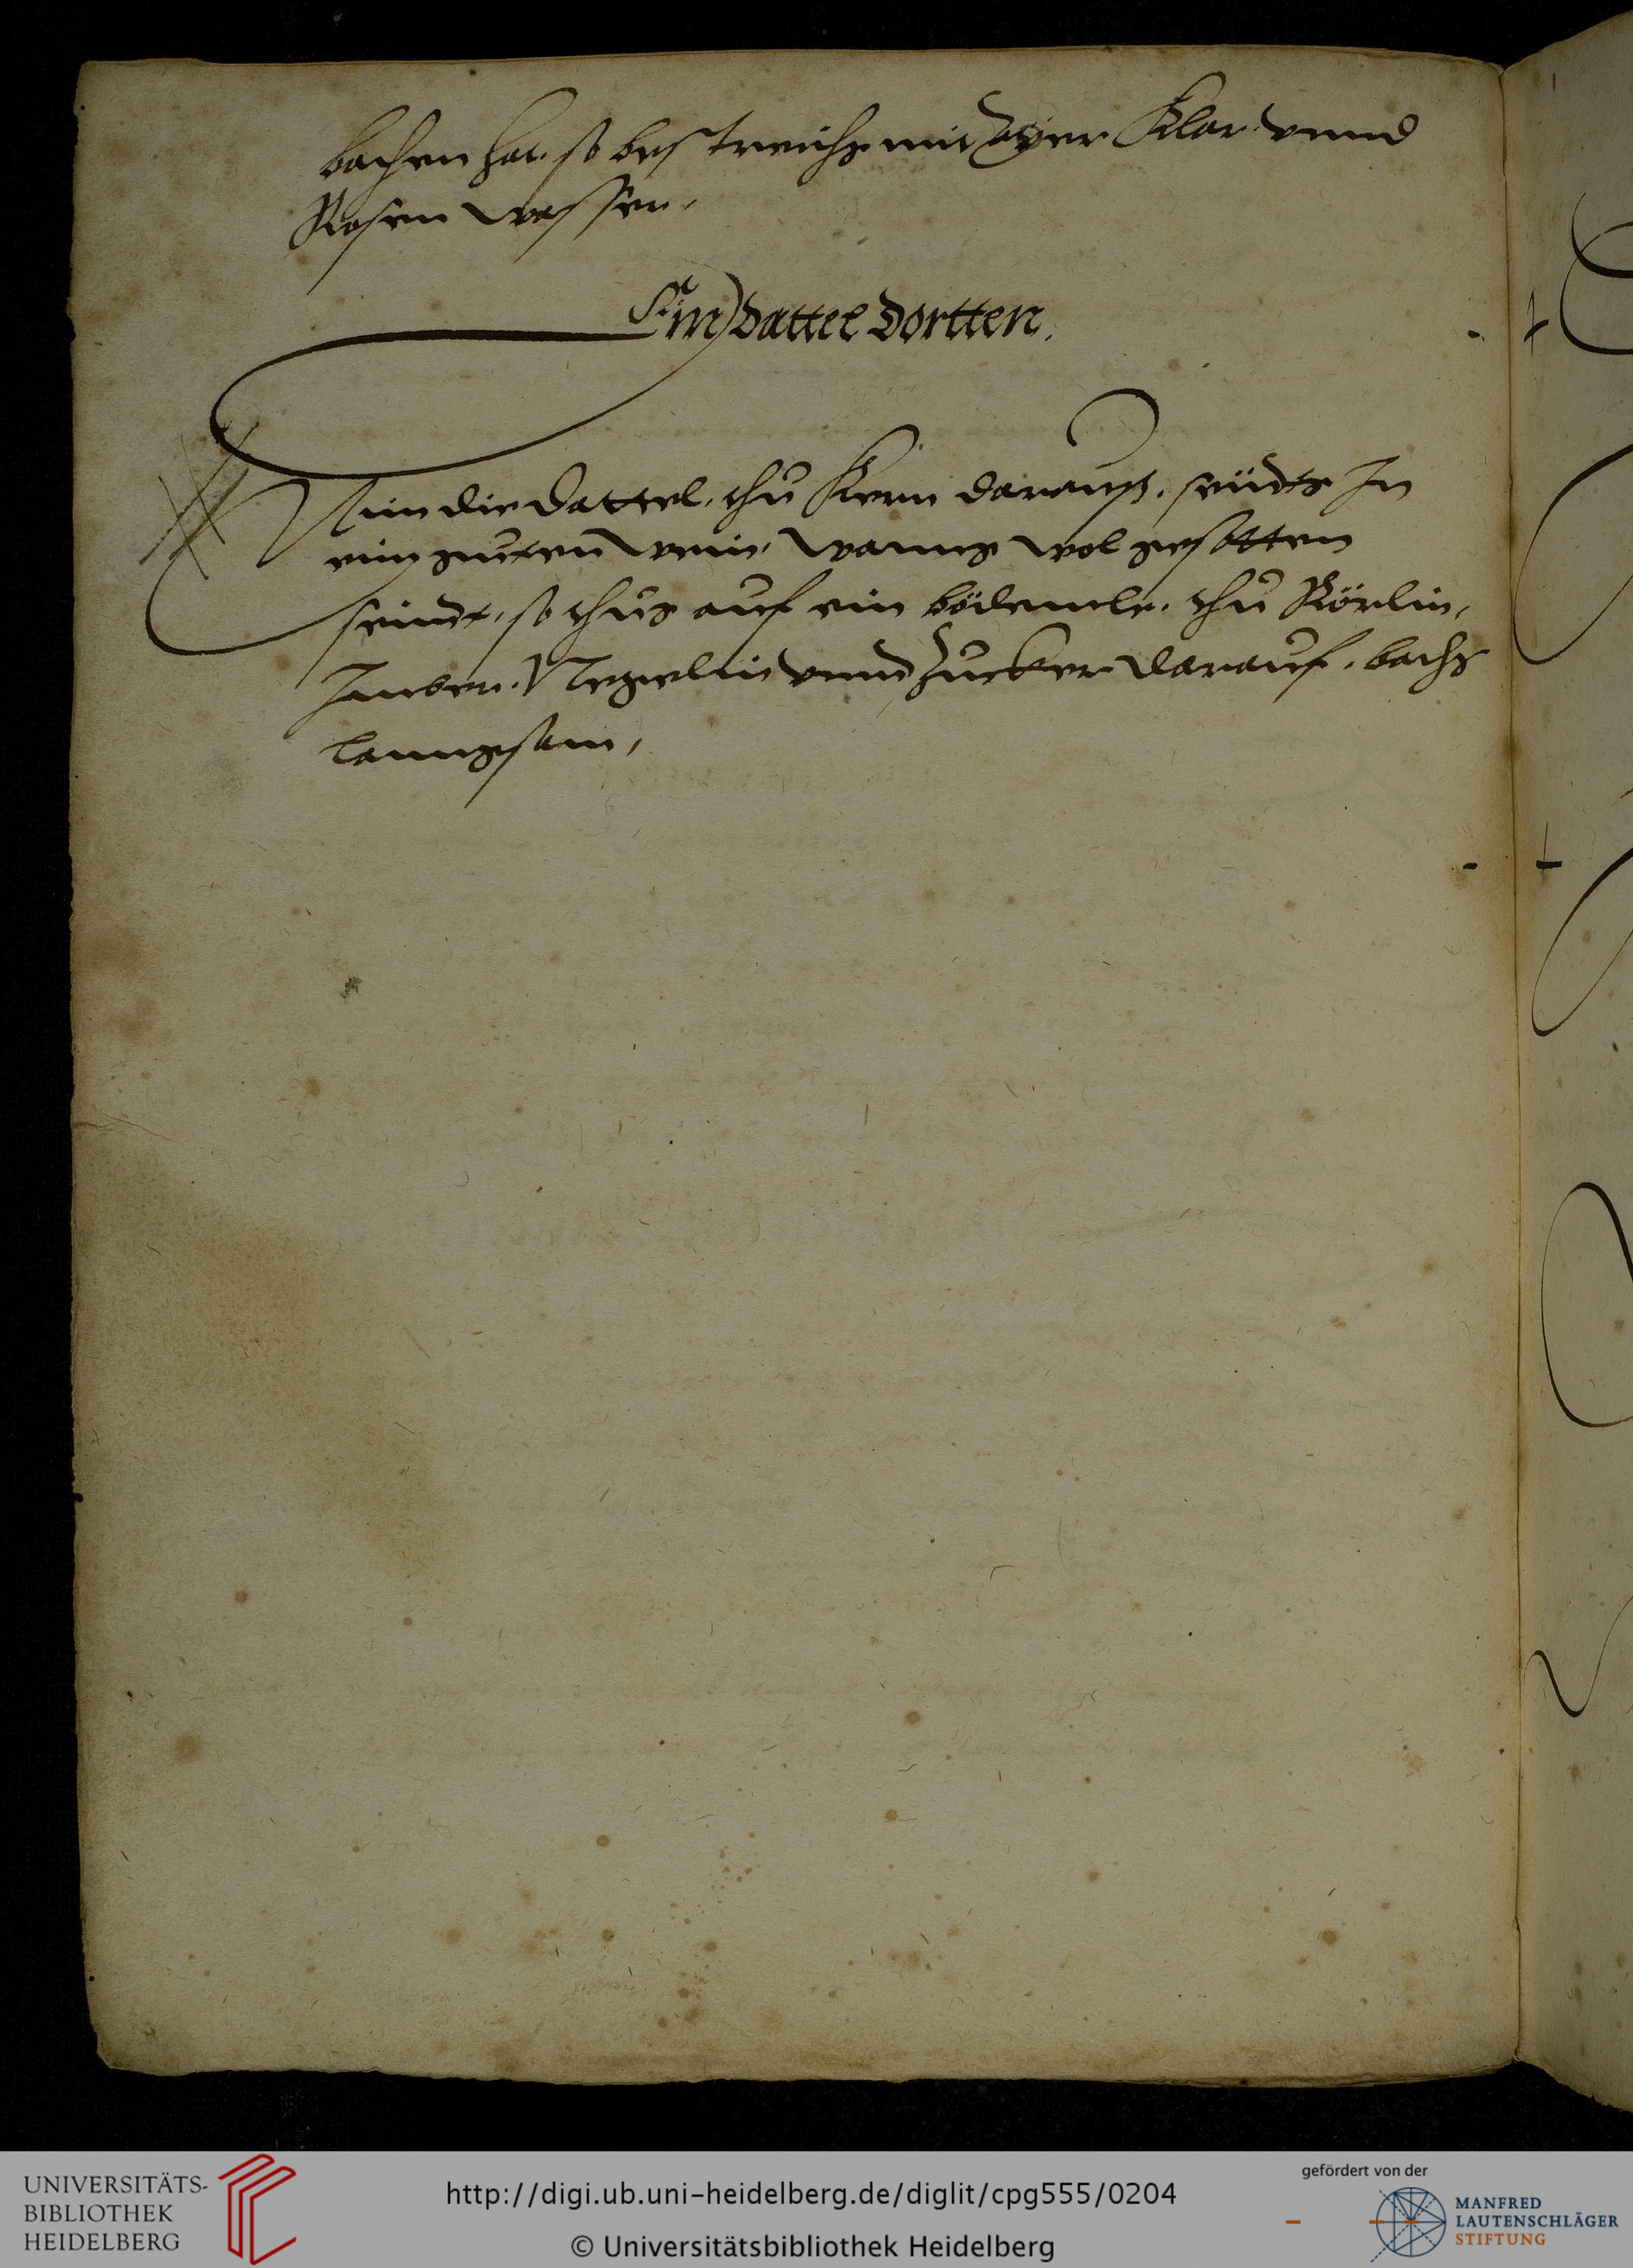 bachen hat, so bestreichs mit Ayer Klar vnnd
Rosen wasser,
Ein Dattel Dortten.
Nim die Dattel, thu Kern darauß, seudts In
ein gueten wein, wanns wol gesotten
seindt, so thus auf ein bödemle, thu Rörlin,
Imber, Negelin vnnd Zucker darauf, bachs
lanngsam,
UNIVERSITÄTS-
BIBLIOTHEK
HEIDELBERG
http://digi.ub.uni-heidelberg.de/diglit/cpg555/0204
© Universitätsbibliothek Heidelberg
gefördert von der
MANFRED
LAUTENSCHLÄGER
STIFTUNG